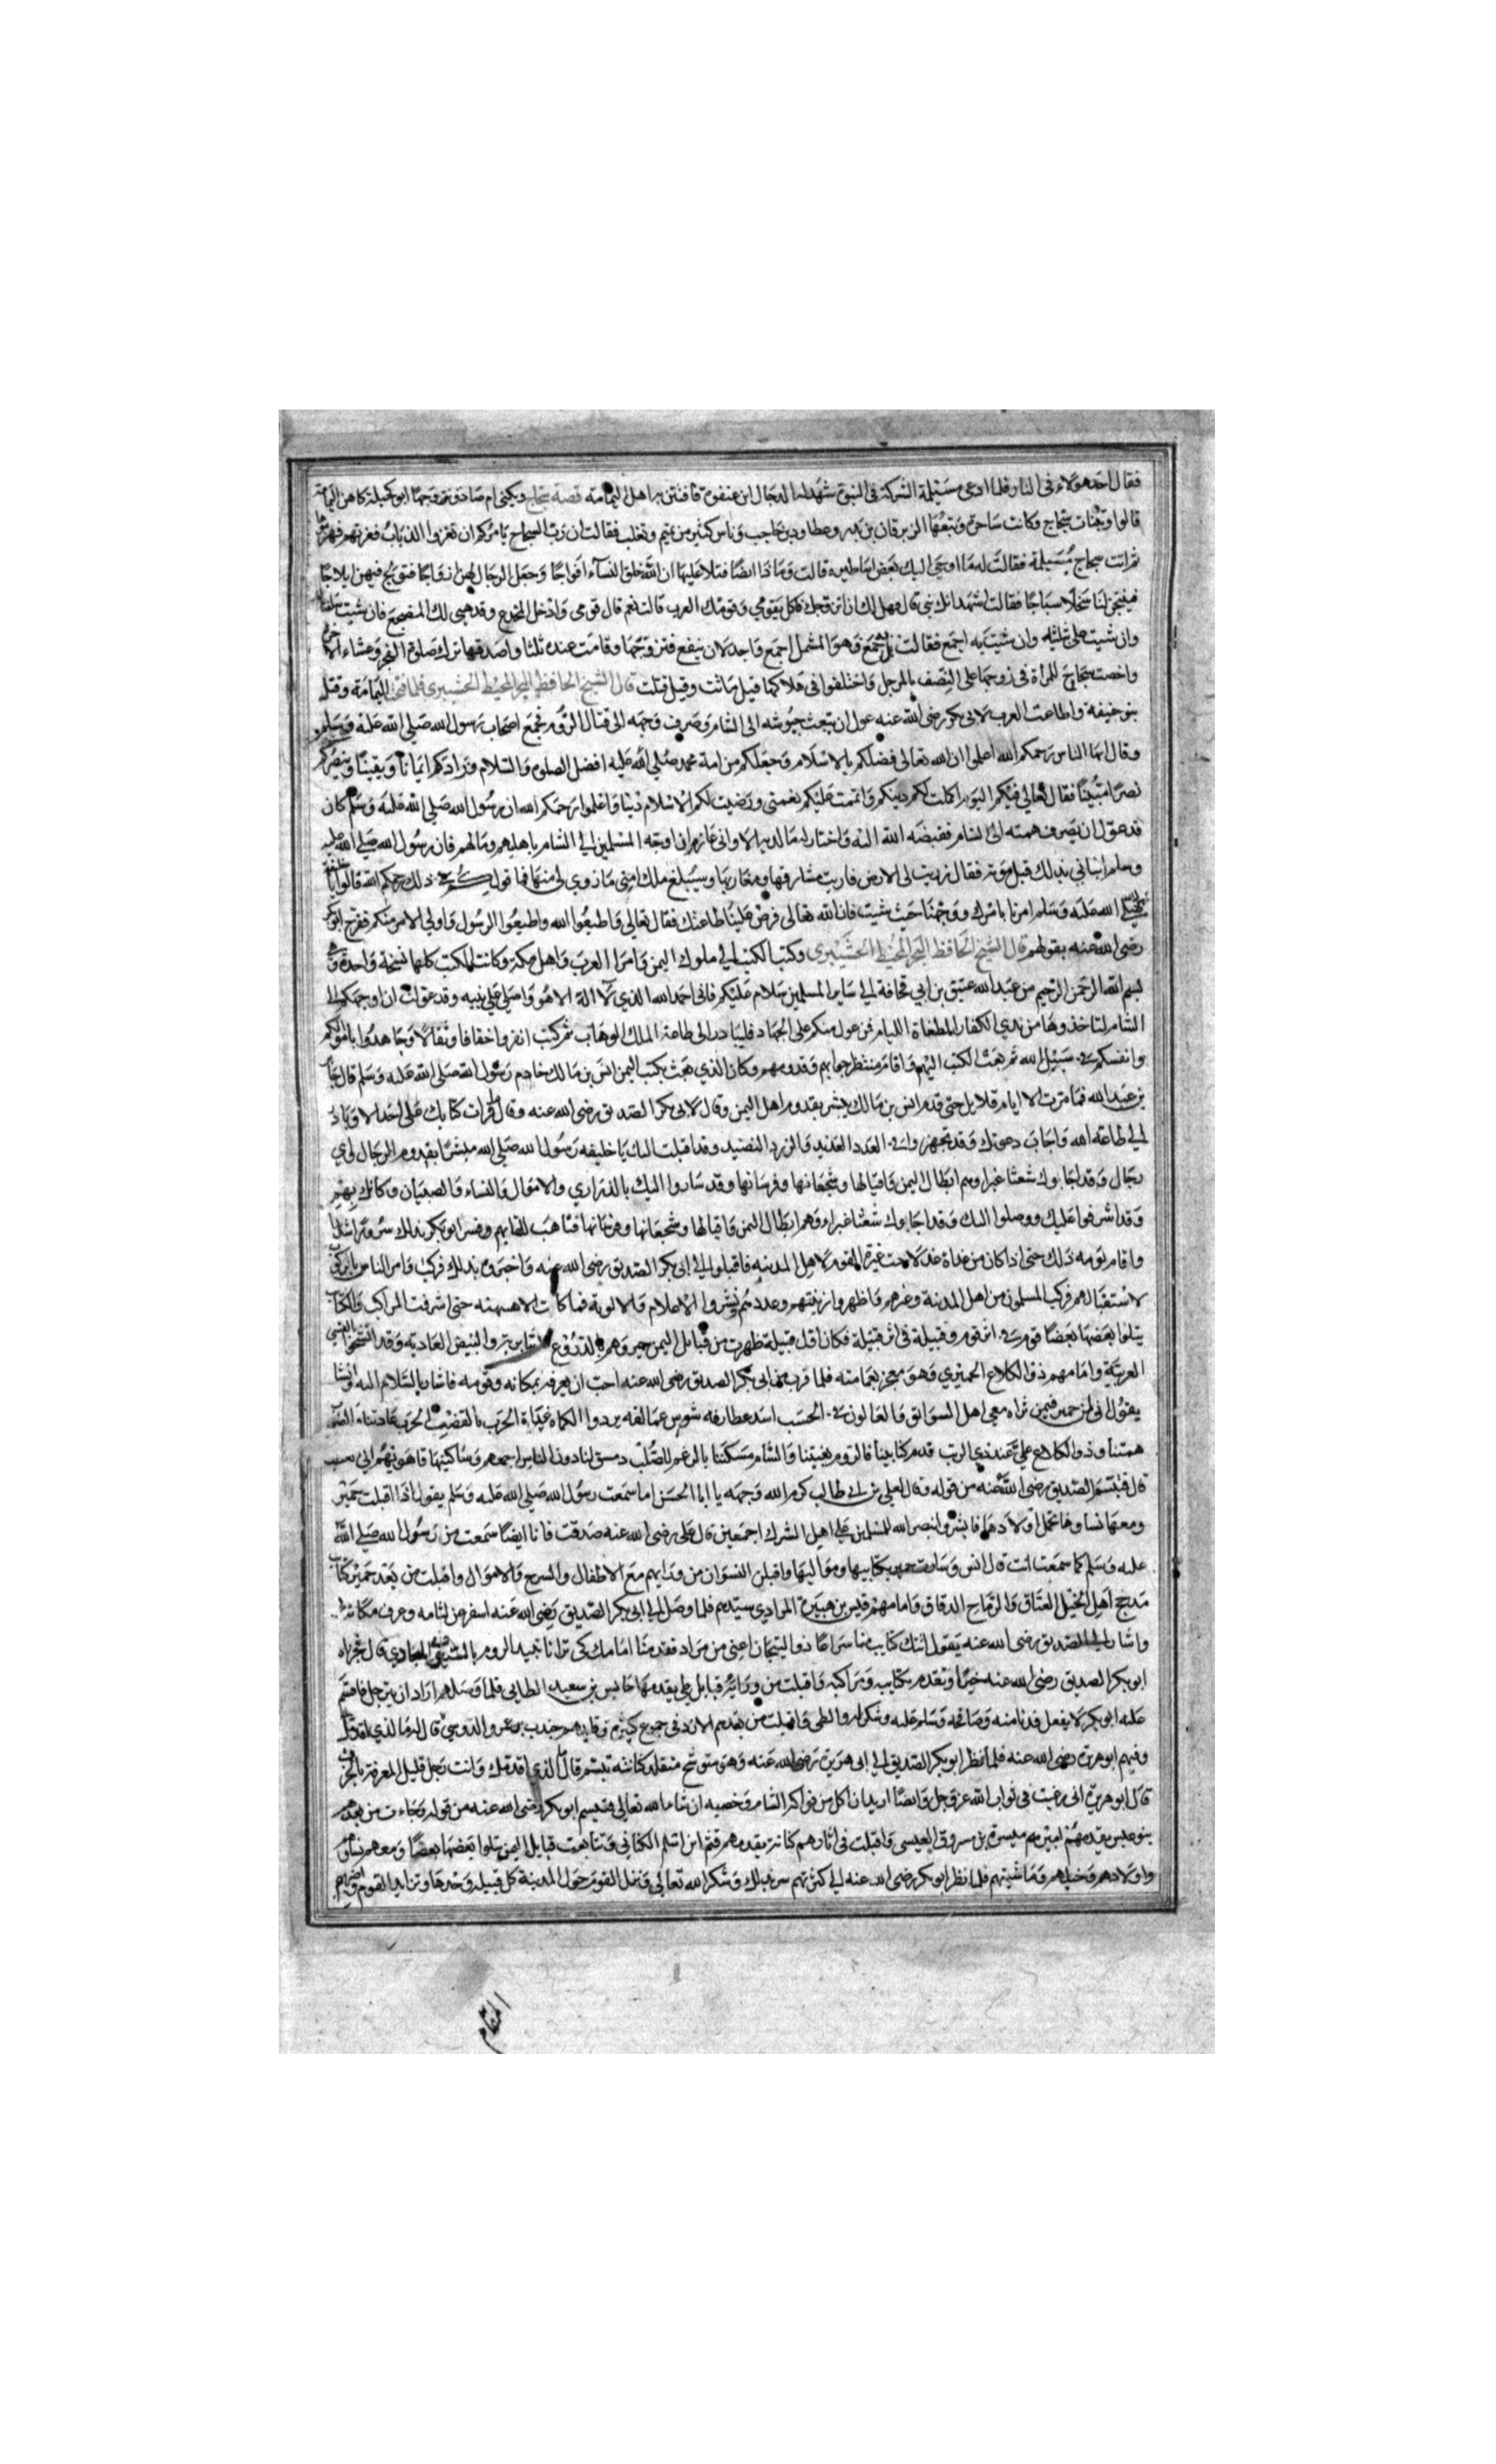 فقال احد هولاء فى النار فلما ادعى مسيلمة الشركة فى النبوة شهد له الدجال ابن عنفوة فافتتن به اهل اليمامة قصة سجاح ويكنى ام صادق تزوجها ابو كحيلة كاهن اليمامة
قالوا وتنبات سجاج وكانت ساحرة وتبعها الزبرقان بن بدر وعطارد بن حاجب وناس كثير من تميم وتغلب فقالت ان رب السحاج يامركم ان تغزوا الذباب فغزتهم فهزموها
ثم اتت سجاج مسيلمة فقالت له ما اوحى اليك بعض اساطيره قالت وما ذا ايضا فتلا عليها ان الله خلق النساء افواجا وجعل الرجال لهن ازواجا فتولج فيهن ايلاجا
فينتجن لنا سخلا سباجا فقالت اشهد انك نبي قال فهل لك ان اتزوجك فاكل بقومي وقومك العرب قالت نعم قال قومى وادخل المخدع وقد هيي لك المضجع فان شيت
وان شيت على ثلثيه وان شيت به اجمع فقالت بل به اجمع وهو المشمل اجمع واجد لان ينفع فتزوجها وقامت عنده ثلثا واصدقها ترك صلوة الفجر وعشاء الاخرة
واختصت سجاح للمراة فى زوجها على النصف بالرجل واختلفوا فى هلاكها قيل ماتت وقيل قتلت قال الشيخ الحافظ البحر المحيط الحشيبرى فلما فتح اليمامة وقتل
بنو حنيفة واطاعت العرب لابى بكر رضى الله عنه عول ان يبعث جيوشه الى الشام وصرف وجهه الى قتال الروم فجمع اصحاب رسول الله صلى الله عليه وسلم
وقال ايها الناس رحمكم الله اعلموا ان الله تعالى فضلكم بالاسلام وجعلكم من امة محمد صلى الله عليه افضل الصلوة والسلام وزادكم ايمانا ويقينا وينصركم
نصرا مبينا فقال تعالى فيكم اليوم اكملت لكم دينكم واتممت عليكم نعمتى ورضيت لكم الاسلام دينا واعلموا رحمكم الله ان رسول الله صلى الله عليه وسلم كان
قد عول ان يصرف همته الى الشام فقبضه الله اليه واختار له ما لديه الا وانى عازم ان اوجه المسلمين الى الشام باهليهم ومالهم فان رسول الله صلى الله عليه
وسلم انبانى بذلك قبل موته فقال زويت لى الارض فاريت مشارقها ومغاربها وسيبلغ ملك امتى ما زوي لى منها فما قولكم فى ذلك رحمكم الله قالوا يا خليفة
رسول الله صلى الله عليه وسلم امرنا بامرك ووجهنا حيث شيت فان الله تعالى فرض علينا طاعتك فقال تعالى واطيعوا الله واطيعوا الرسول واولى الامر منكم ففرح ابو بكر
رضى الله عنه بقولهم قال الشيخ الحافظ البحر المحيط الحشيبرى وكتب الكتب الى ملوك اليمن وامرا العرب واهل مكة وكانت الكتب كلها نسخة واحدة
بسم الله الرحمن الرحيم من عبد الله عتيق بن ابي قحافة الى ساير المسلمين سلام عليكم فانى احمد الله الذي لا اله الا هو واصلى على نبيه وقد عولت ان اوجهكم الى
الشام لتاخذوها من يدي الكفار الطغاة الليام فمن عول منكم على الجهاد فليبادر الى طاعة الملك الوهاب ثم كتب انفروا خفافا وثقالا وجاهدوا باموالكم
وانفسكم فى سبيل الله ثم بعث الكتب اليهم واقام منتظر جوابهم وقدومهم وكان الذي بعث بكتب اليمن انس بن مالك خادم رسول الله صلى الله عليه وسلم قال جابر
بن عبد الله فما مرت الا ايام قلايل حتى قدم انس بن مالك يبشر بقدوم اهل اليمن وقال لابى بكر الصديق رضى الله عنه وقال ما قرات كتابك على احد الا وبادر
الى طاعة الله واجاب دعوتك وقد تجهزوا فى العدد العديد والزرد النضيد وقد اقبلت اليك يا خليفه رسول الله صلى الله مبشرا بقدوم الرجال
رجال وقد اجابوك شعثا غبرا وهم ابطال اليمن واقيالها وشجعانها وفرسانها وقد ساروا اليك بالذراري والاموال والنساء والصبيان وكانك بهم
وقد اشرفوا عليك ووصلوا اليك وقد اجابوك شعثا غبراء وهم ابطال اليمن واقيالها وشجعانها وفرسانها فتاهب للقايهم وفسر ابو بكر بذلك سرورا شديدا
واقام يومه ذلك حتى اذا كان من غداة غد لاحت غبرة القوم لاهل المدينه فاقبلوا الى ابى بكر الصديق رضى الله عنه واخبروه بذلك فركب وامر الناس بالركوب
لاستقبالهم فركب المسلمون من اهل المدينة وغيرهم واظهروا زينتهم وعددهم ونشروا الاعلام والالوية فما كانت الا هنيهة حتى اشرفت المراكب والكتايب
يتلوا بعضها بعضا قوم فى اثر قوم وقبيلة فى اثر قبيلة فكان اول قبيلة ظهرت من قبايل اليمن حمير وهم بالدروع والبيض العاديه وقد
العربية وامامهم ذو الكلاع الحميري وهو معتجر بعمامته فلما قرب من ابى بكر الصديق رضى الله عنه احب ان يعرفه بمكانه وقومه فاشار بالسلام اليه وانشا
يقول انى لمن حمير فيمن تراه معى اهل السوابق والعالون فى الحسب اسد غطارفه شوس عمالقه يردوا الكماة غداة الحرب بالقضب الحرب عادتنا والضرب
همتنا وذو الكلاع على عندي الرتب قدم كتابينا فالروم بغيتنا والشام مسكننا بالرغم للصلب دمسق لنا دون الناس اجمعهم وساكنيها
قال فتبسم الصديق رضى الله عنه من قوله وقال لعلي بن ابى طالب كرم الله وجهه يا ابا الحسن اما سمعت رسول الله صلى الله عليه وسلم يقول اذا اقبلت حمير
ومعها نساوها تحمل اولادها فابشروا بنصر الله للمسلمين على اهل الشرك اجمعين قال على رضى الله عنه صدقت فانا ايضا سمعت من رسول الله صلى الله
عليه وسلم كما سمعت انت قال انس وسارت حمير بكتايبها ومواليها واقبلن النسوان من ورايهم مع الاطفال والسرح والاموال واقبلت من بعد حمير كتايب
مذحج اهل الخيل العتاق والرماح الدقاق وامامهم قيس بن هبيرة المرادي سيدهم فلما وصل الى ابى بكر الصديق رضى الله عنه اسفر عن لثامه وعرف مكانه
واشار الى الصديق رضى الله عنه يقول اتتك كتايب منا سراعا ذوا التيجان اعنى من مراد فقدمنا امامك كى ترانا نبيد الروم قال فجزاه
ابو بكر الصديق رضى الله عنه خيرا وتقدم بكتايبه ومراكبه واقبلت من ورايه قبايل طي يقدمها حابس بن سعيد الطايى فلما وصل اراد ان يترجل فاقسم
عليه ابو بكر لا يفعل فدنا منه وصافحه وسلم عليه وشكر له والطى واقبلت من بعدهم الازد فى جموع كثيرة وقايدهم جندب بن عمرو الدوسى
وفيهم ابو هريرة رضى الله عنه فلما نظر ابو بكر الصديق الى ابى هريرة رضى الله عنه وهو متوشح متقلد كنانته تبسم قال ما الذي اقدمك وانت رجل قليل المعرفة بالحرب
قال ابو هريرة انى رغبت فى ثواب الله عز وجل وايضا اريد ان اكل من فواكه الشام وخصبه ان شاء الله تعالى فتبسم ابو بكر رضى الله عنه من قوله وجاءت من بعدهم
بنو عبس يقدمهم اميرهم ميسرة بن مسروق العبسى واقبلت فى اثارهم كنانة يقدمهم قثم ابن اشيم الكنانى وتتابعت قبايل اليمن يتلوا بعضها بعضا ومعهم نساوهم
واولادهم وخيلهم وماشيتهم فلما نظر ابو بكر رضى الله عنه الى كثرتهم سر بذلك وشكر الله تعالى ونزل القوم حول المدينة كل قبيلة وحدها
المقام